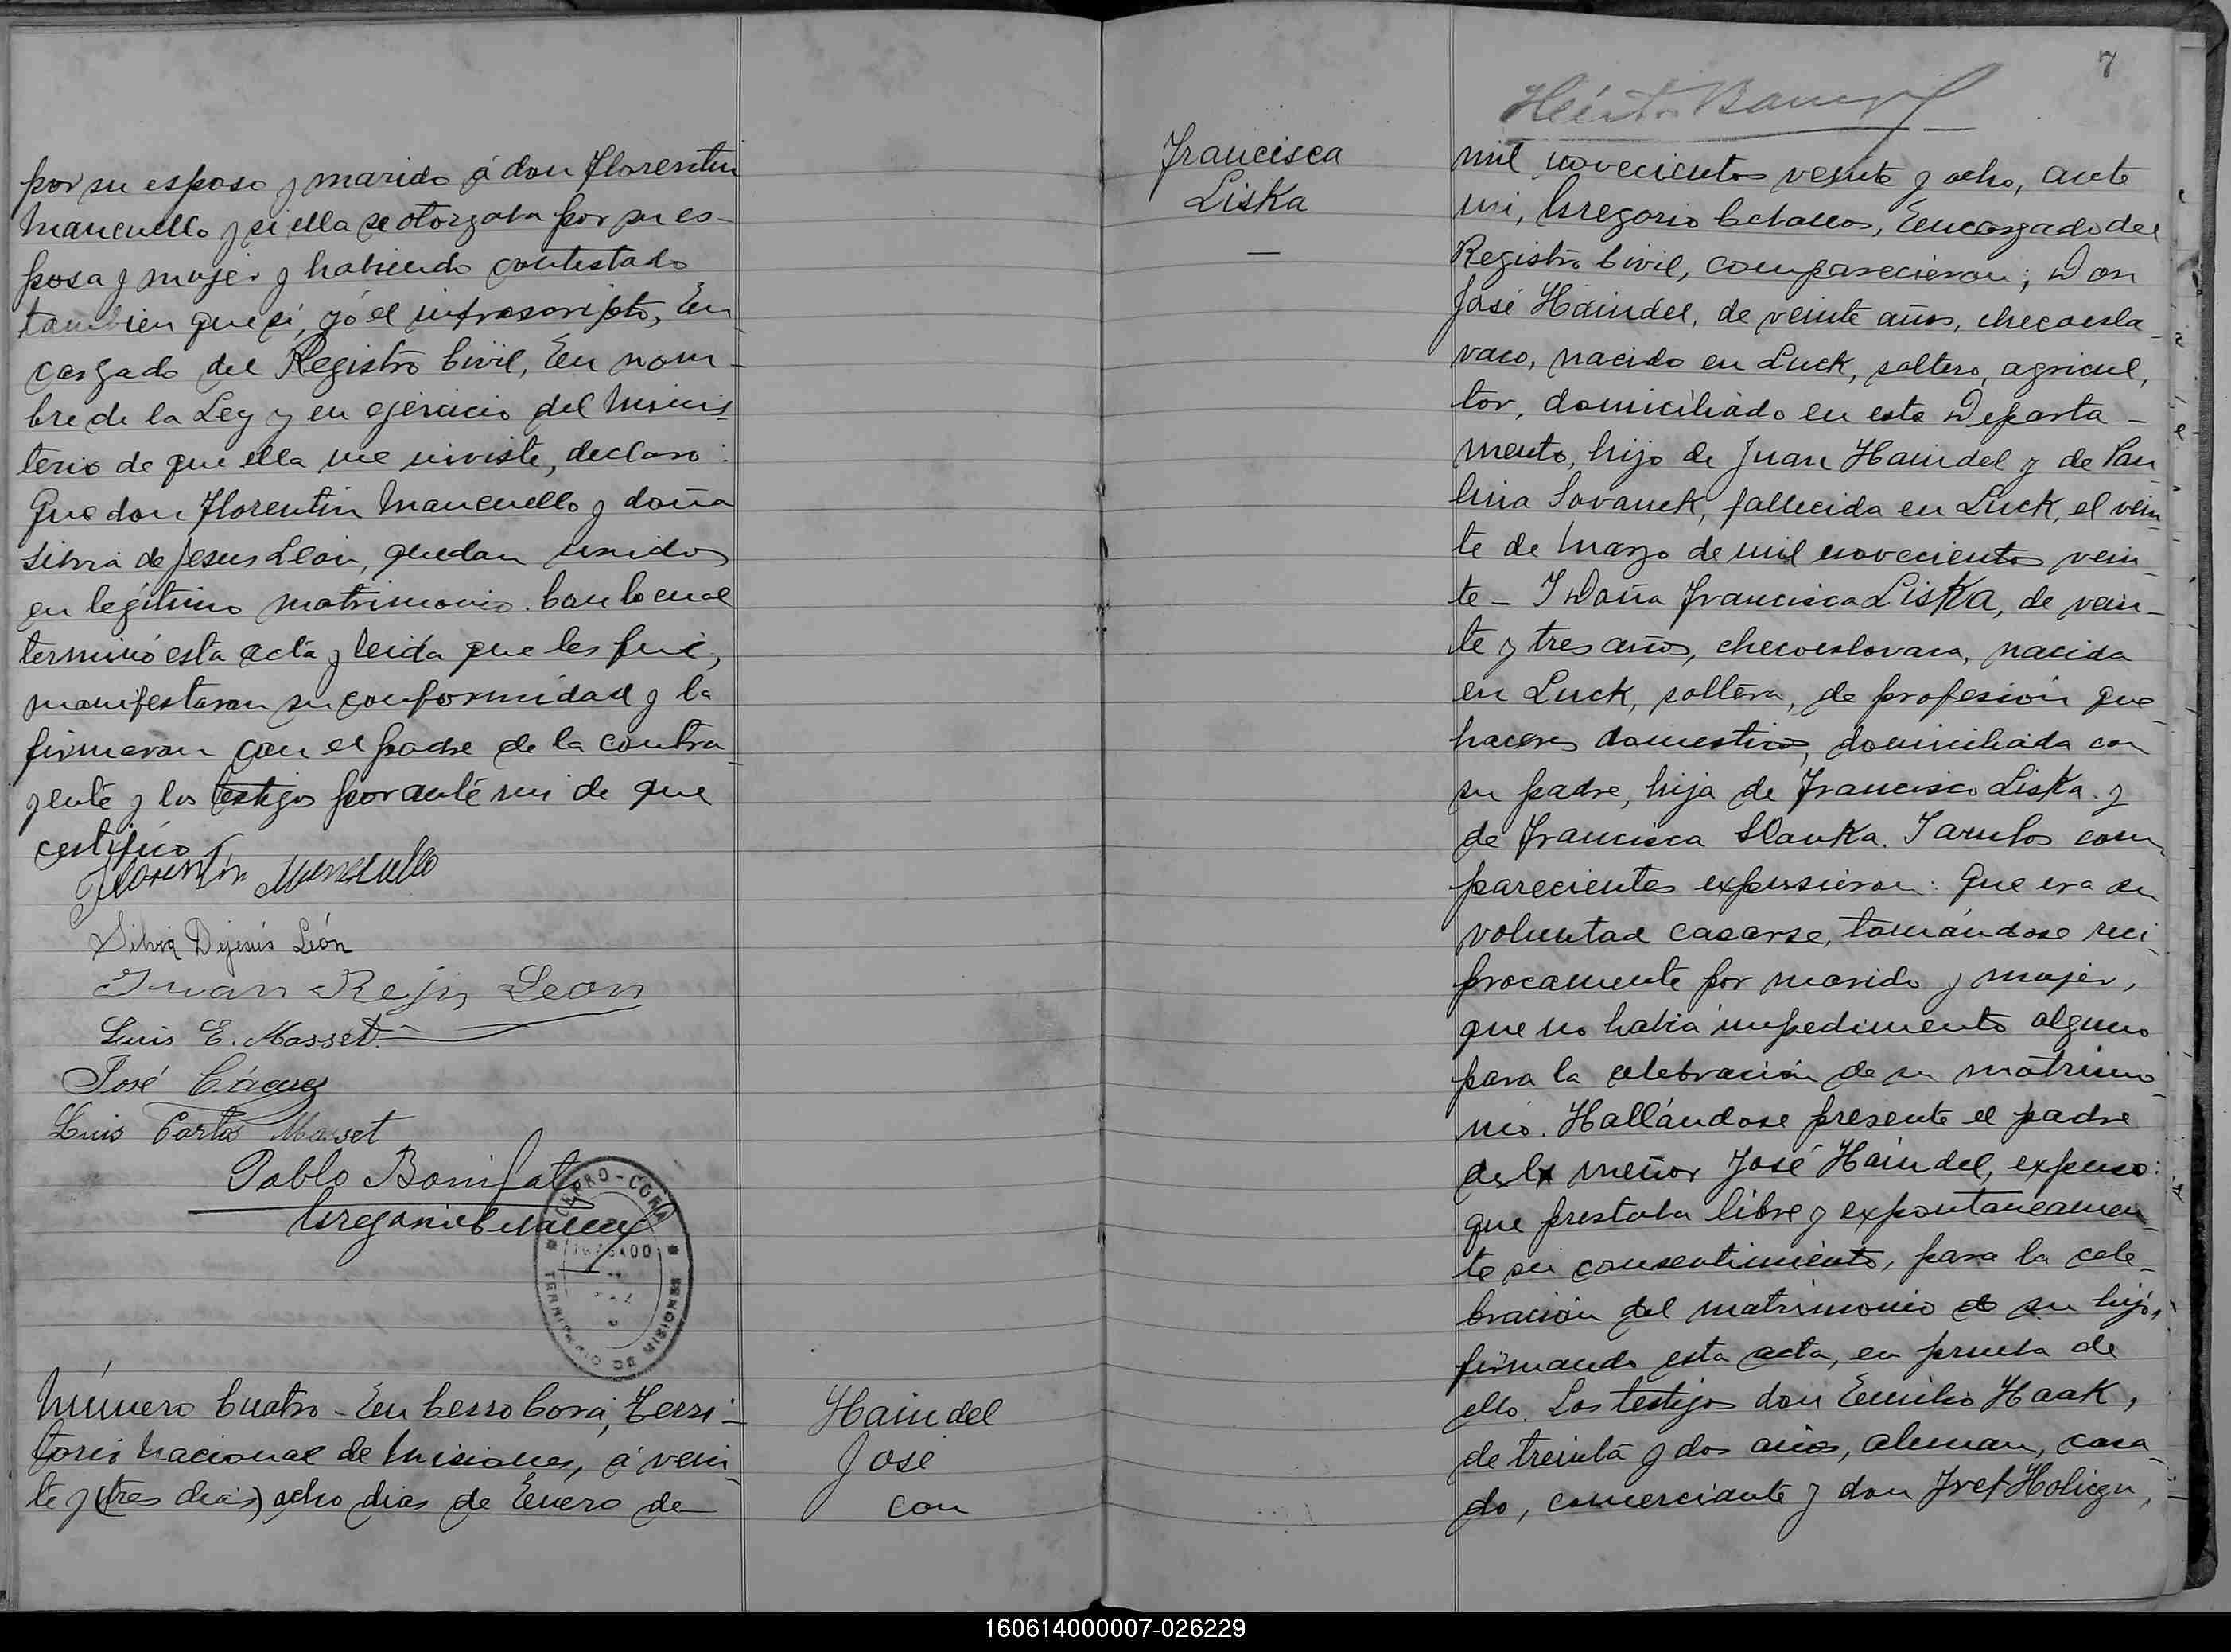 por su esposo y marido á don Florentin
Mancuello y si ella se otorgaba por su es-
posa y mujer y habiendo contestado
tambien que sí, yó el infrascripto, En
cargado del Registro Civil, En nom-
bre de la Ley y en ejercicio del Minis
terio de que ella me inviste, declaro:
Que don Florentin Mancuello y doña
Silvia de Jesus León, quedan unidos
en legítimo matrimonio. Con lo cual
terminó esta acta y leida que les fué,
manifestaron su conformidad y la
firmaron con el padre de la contra-
yente y los testigos por ante mi de que
certifico
Florentín Mancuello
Silvia Dejesús León
Juan Rejis Leon
Luis E. Masset
José Cáceres
Luis Carlos Masset
Pablo Bonifato
CERRO-CORÁ
JUZGADO
TERRITORIO DE MISIONES
Número Cuatro - En Cerro Corá, Terri-
torio Nacional de Misiones, á vein-
te y (tres dias) ocho dias de Enero de
Haindel
José
con
Francisca
Liska
—
7
mil novecientos veinte y ocho, ante
mi, Gregorio Ceballos, Encargado del
Registro Civil, comparecieron; Don
José Haindel, de veinte años, checoesla-
vaco, nacido en Luck, soltero, agricul,
tor, domiciliado en este Departa-
mento, hijo de Juan Haindel y de Pau
lina Sovanek, fallecida en Luck, el vein
te de Marzo de mil novecientos vein-
te - Y Doña Francisca Liska, de vein-
te y tres años, checoeslovaca, nacida
en Luck, soltera, de profesión que-
haceres domesticos, domiciliada con
su padre, hija de Francisco Liska y
de Francisca Slauka. Y ambos com-
parecientes expusieron: Que era su
voluntad casarse, tomándose reci-
procamente por marido y mujer,
que no había impedimento alguno
para la celebración de su matrimo-
nio. Hallándose presente el padre
del menor José Haindel, expuso:
que prestaba libre y expontaneamen-
te su consentimiento, para la cele-
bración del matrimonio de su hijo,
firmando esta acta, en prueba de
ello. Los testigos don Emilio Haak,
de treinta y dos años, aleman, casa-
do, comerciante y don
160614000007-026229